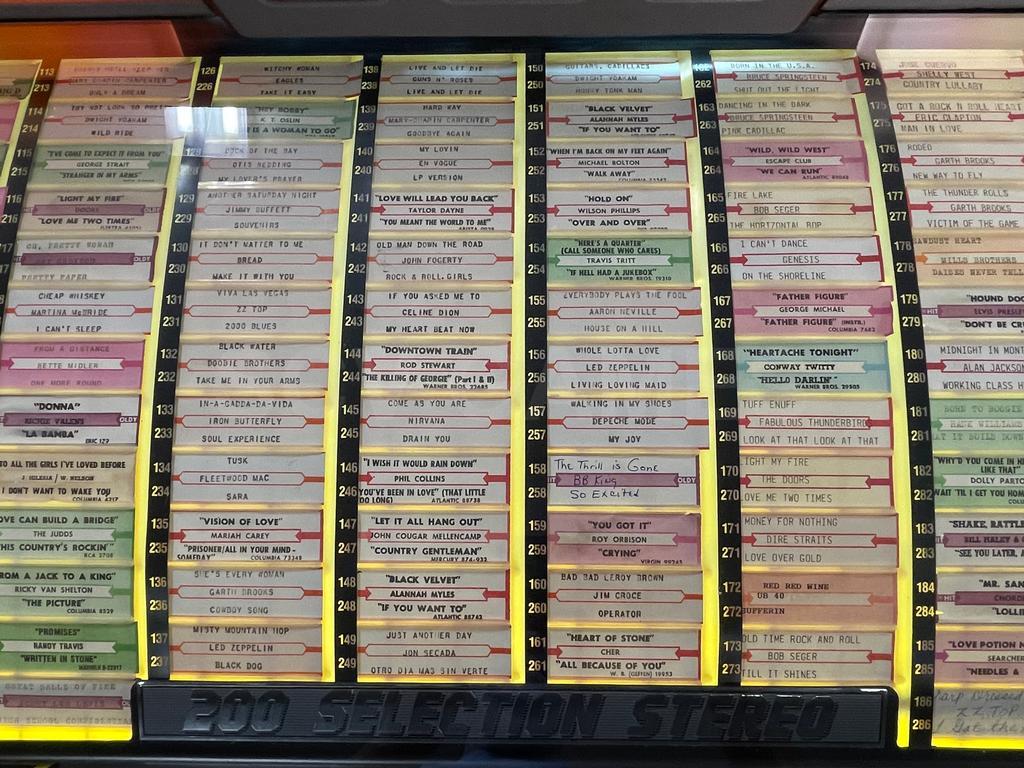 113
213
MARY-CHAPIN CARPENTER
ONLY A DREAM
214
TRY NOT LOOK SO PRETTY
DWIGHT YOAKAM
WILD RIDE
115
215
"I'VE COME TO EXPECT IT FROM YOU"
GEORGE STRAIT
"STRANGER IN MY ARMS"
116
216
"LIGHT MY FIRE"
DOORS
"LOVE ME TWO TIMES"
OH, PRETTY WOMAN
ROY ORBISON
PRETTY PAPER
CHEAP WHISKEY
MARTINA McBRIDE
I CAN'T SLEEP
FROM A DISTANCE
BETTE MIDLER
ONE MORE ROUND
"DONNA"
RICHIE VALENS
OLDY
"LA BAMBA"
ERIC 129
TO ALL THE GIRLS I'VE LOVED BEFORE
J. IGLESIA / W. NELSON
I DON'T WANT TO WAKE YOU
COLUMBIA 4217
LOVE CAN BUILD A BRIDGE"
THE JUDDS
THIS COUNTRY'S ROCKIN'"
RCA 2708
FROM A JACK TO A KING"
RICKY VAN SHELTON
"THE PICTURE"
COLUMBIA 8529
"PROMISES"
RANDY TRAVIS
"WRITTEN IN STONE"
GREAT BALLS OF FIRE
HIGH SCHOOL CONFIDENTIAL
126
226
WITCHY WOMAN
EAGLES
TAKE IT EASY
"HEY BOBBY"
K.T. OSLIN
IS A WOMAN TO GO"
128
228
DOCK OF THE BAY
OTIS REDDING
MY LOVER'S PRAYER
129
229
ANOTHER SATURDAY NIGHT
JIMMY BUFFETT
SOUVENIRS
130
230
IT DON'T MATTER TO ME
BREAD
MAKE IT WITH YOU
131
231
VIVA LAS VEGAS
ZZ TOP
2000 BLUES
132
232
BLACK WATER
DOOBIE BROTHERS
TAKE ME IN YOUR ARMS
133
233
IN-A-GADDA-DA-VIDA
IRON BUTTERFLY
SOUL EXPERIENCE
134
234
TUSK
FLEETWOOD MAC
SARA
135
235
"VISION OF LOVE"
MARIAH CAREY
"PRISONER/ALL IN YOUR MIND-
SOMEDAY"
COLUMBIA 73348
136
236
SHE'S EVERY WOMAN
GARTH BROOKS
COWBOY SONG
137
237
MISTY MOUNTAIN HOP
LED ZEPPELIN
BLACK DOG
138
238
LIVE AND LET DIE
GUNS N' ROSES
LIVE AND LET DIE
139
239
HARD WAY
MARY-CHAPIN CARPENTER
GOODBYE AGAIN
140
240
MY LOVIN
EN VOGUE
LP VERSION
141
241
"LOVE WILL LEAD YOU BACK"
TAYLOR DAYNE
"YOU MEANT THE WORLD TO ME"
142
242
OLD MAN DOWN THE ROAD
JOHN FOGERTY
ROCK & ROLL GIRLS
143
243
IF YOU ASKED ME TO
CELINE DION
MY HEART BEAT NOW
144
244
"DOWNTOWN TRAIN"
ROD STEWART
"THE KILLING OF GEORGE" (Part I & II)
WARNER BROS. 22685
145
245
COME AS YOU ARE
NIRVANA
DRAIN YOU
146
246
"I WISH IT WOULD RAIN DOWN"
PHIL COLLINS
"YOU'VE BEEN IN LOVE" (THAT LITTLE
TOO LONG)
ATLANTIC 88738
147
247
"LET IT ALL HANG OUT"
JOHN COUGAR MELLENCAMP
"COUNTRY GENTLEMAN"
MERCURY 874-932
148
248
"BLACK VELVET"
ALANNAH MYLES
"IF YOU WANT TO"
ATLANTIC 88742
149
249
JUST ANOTHER DAY
JON SECADA
OTRO DIA MAS SIN VERTE
150
250
GUITARS, CADILLACS
DWIGHT YOAKAM
HONKY TONK MAN
151
251
"BLACK VELVET"
ALANNAH MYLES
"IF YOU WANT TO"
152
252
"WHEN I'M BACK ON MY FEET AGAIN"
MICHAEL BOLTON
"WALK AWAY"
153
253
"HOLD ON"
WILSON PHILLIPS
"OVER AND OVER"
154
254
"HERE'S A QUARTER"
(CALL SOMEONE WHO CARES)
TRAVIS TRITT
"IF HELL HAD A JUKEBOX"
WARNER BROS. 19310
155
255
EVERYBODY PLAYS THE FOOL
AARON NEVILLE
HOUSE ON A HILL
156
256
WHOLE LOTTA LOVE
LED ZEPPELIN
LIVING LOVING MAID
157
257
WALKING IN MY SHOES
DEPECHE MODE
MY JOY
158
258
The Thrill is Gone
BB King
OLDY
So Excited
159
259
"YOU GOT IT"
ROY ORBISON
"CRYING"
VIRGIN 99245
160
260
BAD BAD LEROY BROWN
JIM CROCE
OPERATOR
161
261
"HEART OF STONE"
CHER
"ALL BECAUSE OF YOU"
W. B. (GEFFEN) 19953
162
262
BORN IN THE U.S.A.
BRUCE SPRINGSTEEN
SHUT OUT THE LIGHT
163
263
DANCING IN THE DARK
BRUCE SPRINGSTEEN
PINK CADILLAC
164
264
"WILD, WILD WEST"
ESCAPE CLUB
"WE CAN RUN"
165
265
FIRE LAKE
BOB SEGER
THE HORIZONTAL BOP
166
266
I CAN'T DANCE
GENESIS
ON THE SHORELINE
167
267
"FATHER FIGURE"
GEORGE MICHAEL
"FATHER FIGURE" (INSTR.)
COLUMBIA 7682
168
268
"HEARTACHE TONIGHT"
CONWAY TWITTY
"HELLO DARLIN'"
WARNER BROS. 29505
169
269
TUFF ENUFF
FABULOUS THUNDERBIRD
LOOK AT THAT LOOK AT THAT
170
270
LIGHT MY FIRE
THE DOORS
LOVE ME TWO TIMES
171
271
MONEY FOR NOTHING
DIRE STRAITS
LOVE OVER GOLD
172
272
RED RED WINE
UB 40
SUFFERIN
173
273
OLD TIME ROCK AND ROLL
BOB SEGER
TILL IT SHINES
174
274
JOSE CUERVO
SHELLY WEST
COUNTRY LULLABY
175
275
GOT A ROCK N ROLL HEART
ERIC CLAPTON
MAN IN LOVE
176
276
RODEO
GARTH BROOKS
NEW WAY TO FLY
177
277
THE THUNDER ROLLS
GARTH BROOKS
VICTIM OF THE GAME
178
278
SAWDUST HEART
MILLS BROTHERS
DAISES NEVER TELL
179
279
"HOUND DO
HIT
ELVIS PRESLE
"DON'T BE CR
180
280
MIDNIGHT IN MONT
ALAN JACKSON
WORKING CLASS H
181
281
BORN TO BOOGIE
HANK WILLIAMS
182
282
WHY'D YOU COME IN H
LIKE THAT"
DOLLY PARTO
WAIT 'TIL I GET YOU HOM
183
283
"SHAKE, RATTL
BILL HALEY &
"SEE YOU LATER, A
184
284
"MR. SAN
HIT
CHORD
"LOLLI
185
285
"LOVE POTION N
SEARCHER
"NEEDLES &
186
286
ZZ TOP
200 SELECTION STEREO